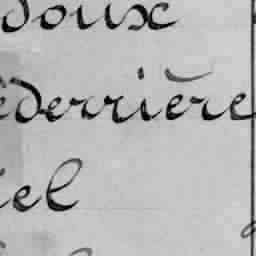 doux
derrière
iel